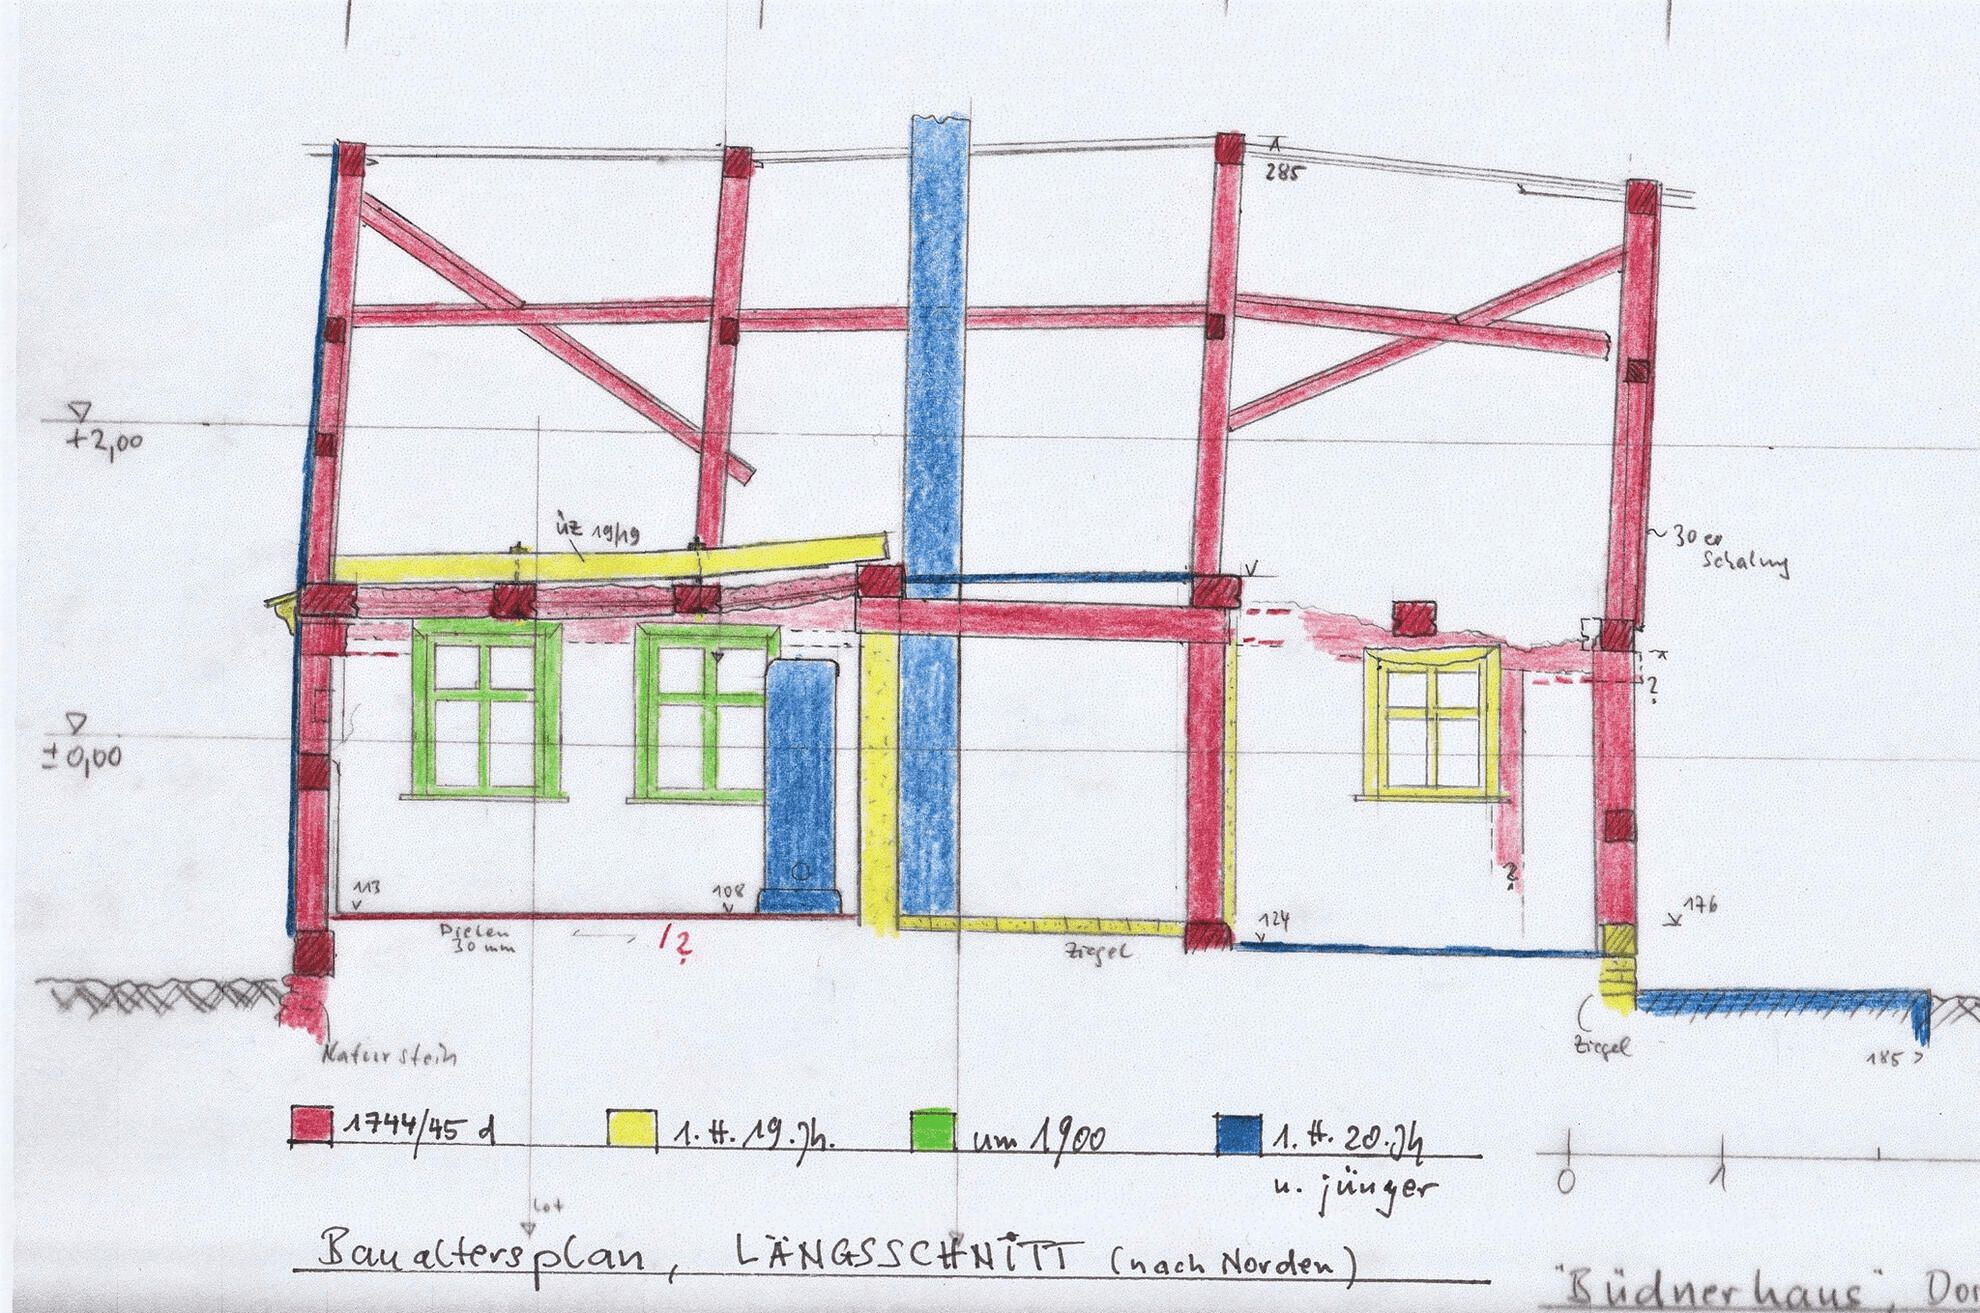 285
+2,00
üz 19/19
~30er
Schalung
?
±0,00
?
113
108
124
176
Dielen
30 mm
!?
Ziegel
Naturstein
Ziegel
185 >
1744/45 d
1. H. 19. Jh.
um 1900
1. H. 20. Jh
u. jünger
0
1
Lot
Baualtersplan, LÄNGSSCHNITT (nach Norden)
"Büdnerhaus",